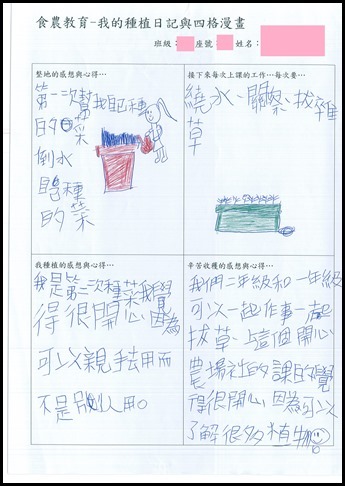 食農教育-我的種植日記與四格漫畫
班級： 座號： 姓名：
整地的感想與心得…
第二次幫我自己種
的菜
倒水
的菜
接下來每次上課的工作…每次要…
繞水、關察、拔雜
草
我種植的感想與心得…
我是第二次種菜我覺
得很開心因為
可以親手去用而
不是別人用。
辛苦收穫的感想與心得…
我們二年級和一年級
可以一起作事一起
拔草、上這個開心
農場社的課我覺
得很開心因為可以
了解很多植物。